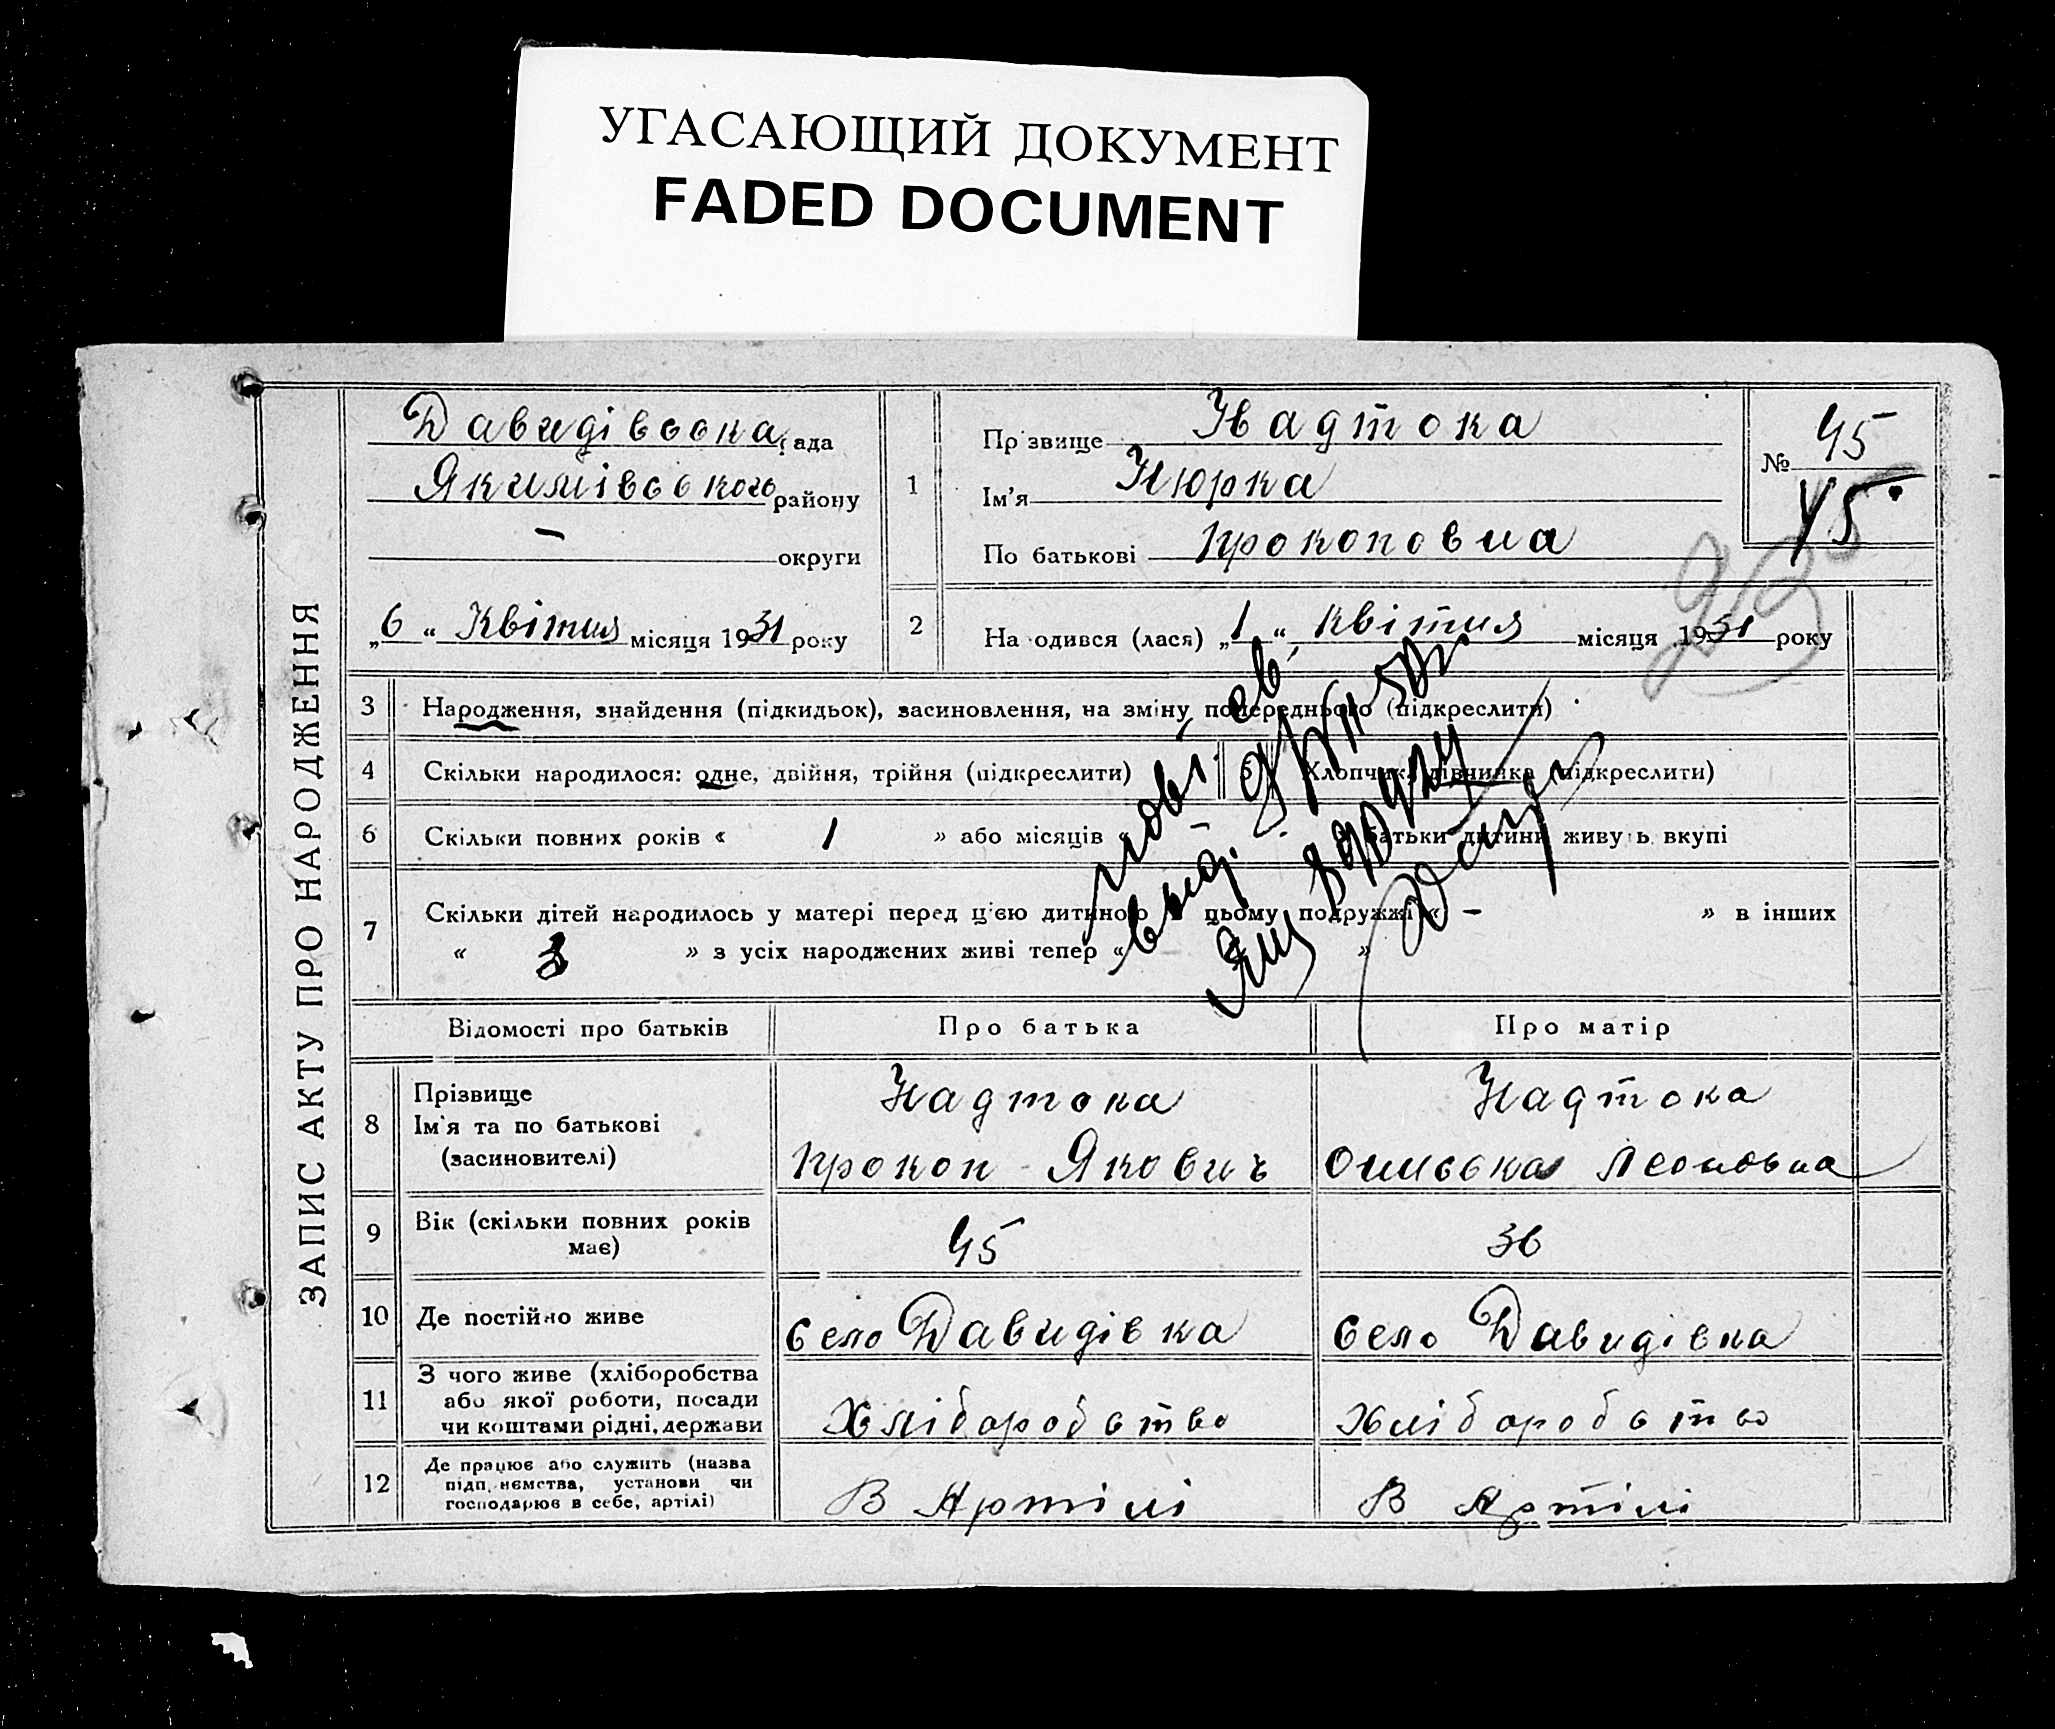 УГАСАЮЩИЙ ДОКУМЕНТ
FADED DOCUMENT
ЗАПИС АКТУ ПРО НАРОДЖЕННЯ
Давидівська рада
Якимівського району
— округи
„6“ Квітня місяця 1931 року
1
Прізвище Надтока
Ім'я Нюрка
По батькові Прокоповна
№ 45
45
2 На одився (лася) „1“ квітня місяця 1931 року
3 Народження, знайдення (підкидьок), засиновлення, на зміну попереднього (підкреслити)
4 Скільки народилося: одне, двійня, трійня (підкреслити) 5 Хлопчик, дівчинка (підкреслити)
6 Скільки повних років « 1 » або місяців « — батьки дитини живуть вкупі
7 Скільки дітей народилось у матері перед ц'єю дитиною в цьому подружжі « — » в інших
« 3 » з усіх народжених живі тепер « — »
Відомості про батьків Про батька Про матір
8 Прізвище
Ім'я та по батькові
(засиновителі)
Надтока Надтока
Прокоп Якович Леоновна
9 Вік (скільки повних років
має)
45 36
10 Де постійно живе село Давидівка село Давидівка
11 З чого живе (хліборобства
або якої роботи, посади
чи коштами рідні, держави
Хліборобство Хліборобство
12 Де працює або служить (назва
підп.иємства, установи чи
господарює в себе, артілі)
В Артілі В Артілі